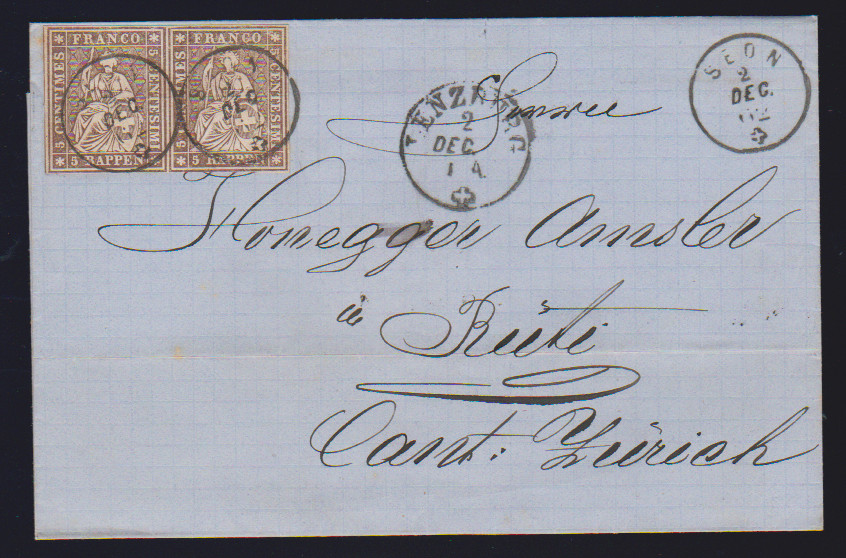 FRANCO
5 CENTIMES
5 CENTESIMI
5 RAPPEN
FRANCO
5 CENTESIMI
5 RAPPEN
DEC
DEC
LENZBURG
2
DEC
1 A
SEON
2
DEC.
62
Honegger Amsler
in
Rüti
Cant: Zürich